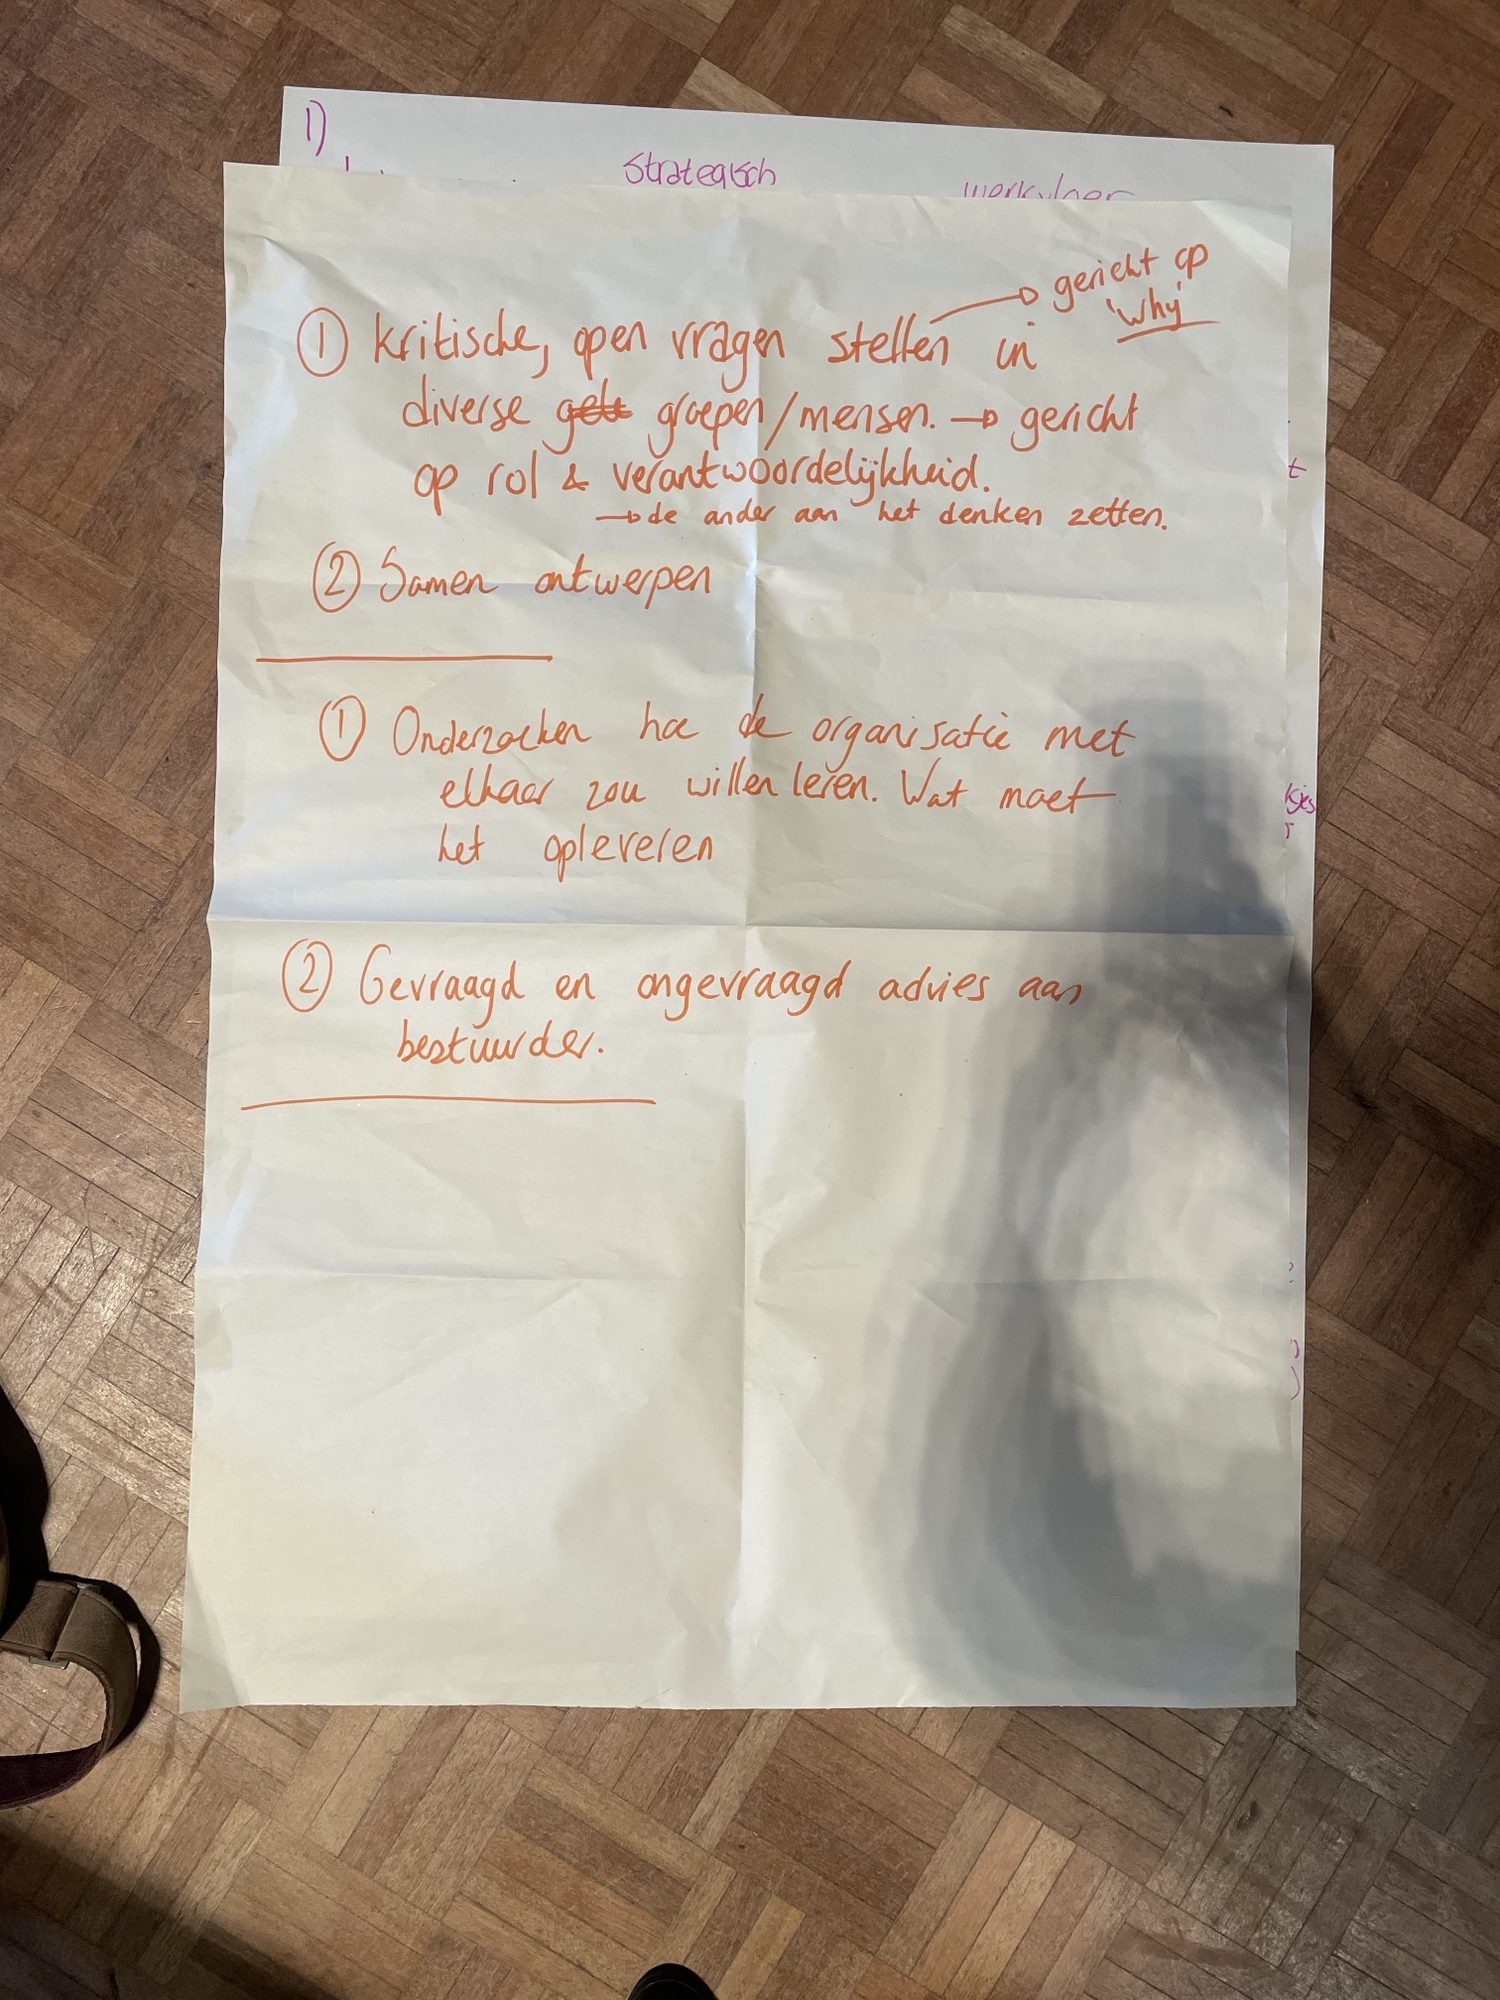 1)
strategisch
werkvloer
→ gericht op
'why'
① Kritische, open vragen stellen in
diverse groepen/mensen. → gericht
op rol & verantwoordelijkheid.
→ de ander aan het denken zetten.
② Samen ontwerpen
① Onderzoeken hoe de organisatie met
elkaar zou willen leren. Wat moet
het opleveren
② Gevraagd en ongevraagd advies aan
bestuurder.